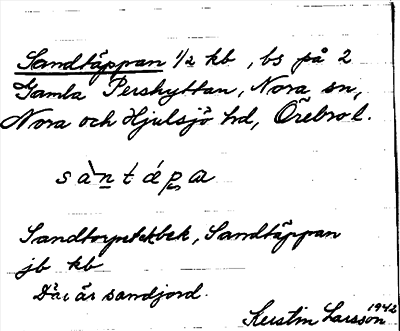 Sandtäppan 1/2 kb, bs på 2
Gamla Pershyttan, Nora sn,
Nora och Hjulsjö hd, Örebro l.
sàntápa
Sandtorpet ekbek, Sandtäppan
jb kb
Där är sandjord.
Kerstin Larsson 1942